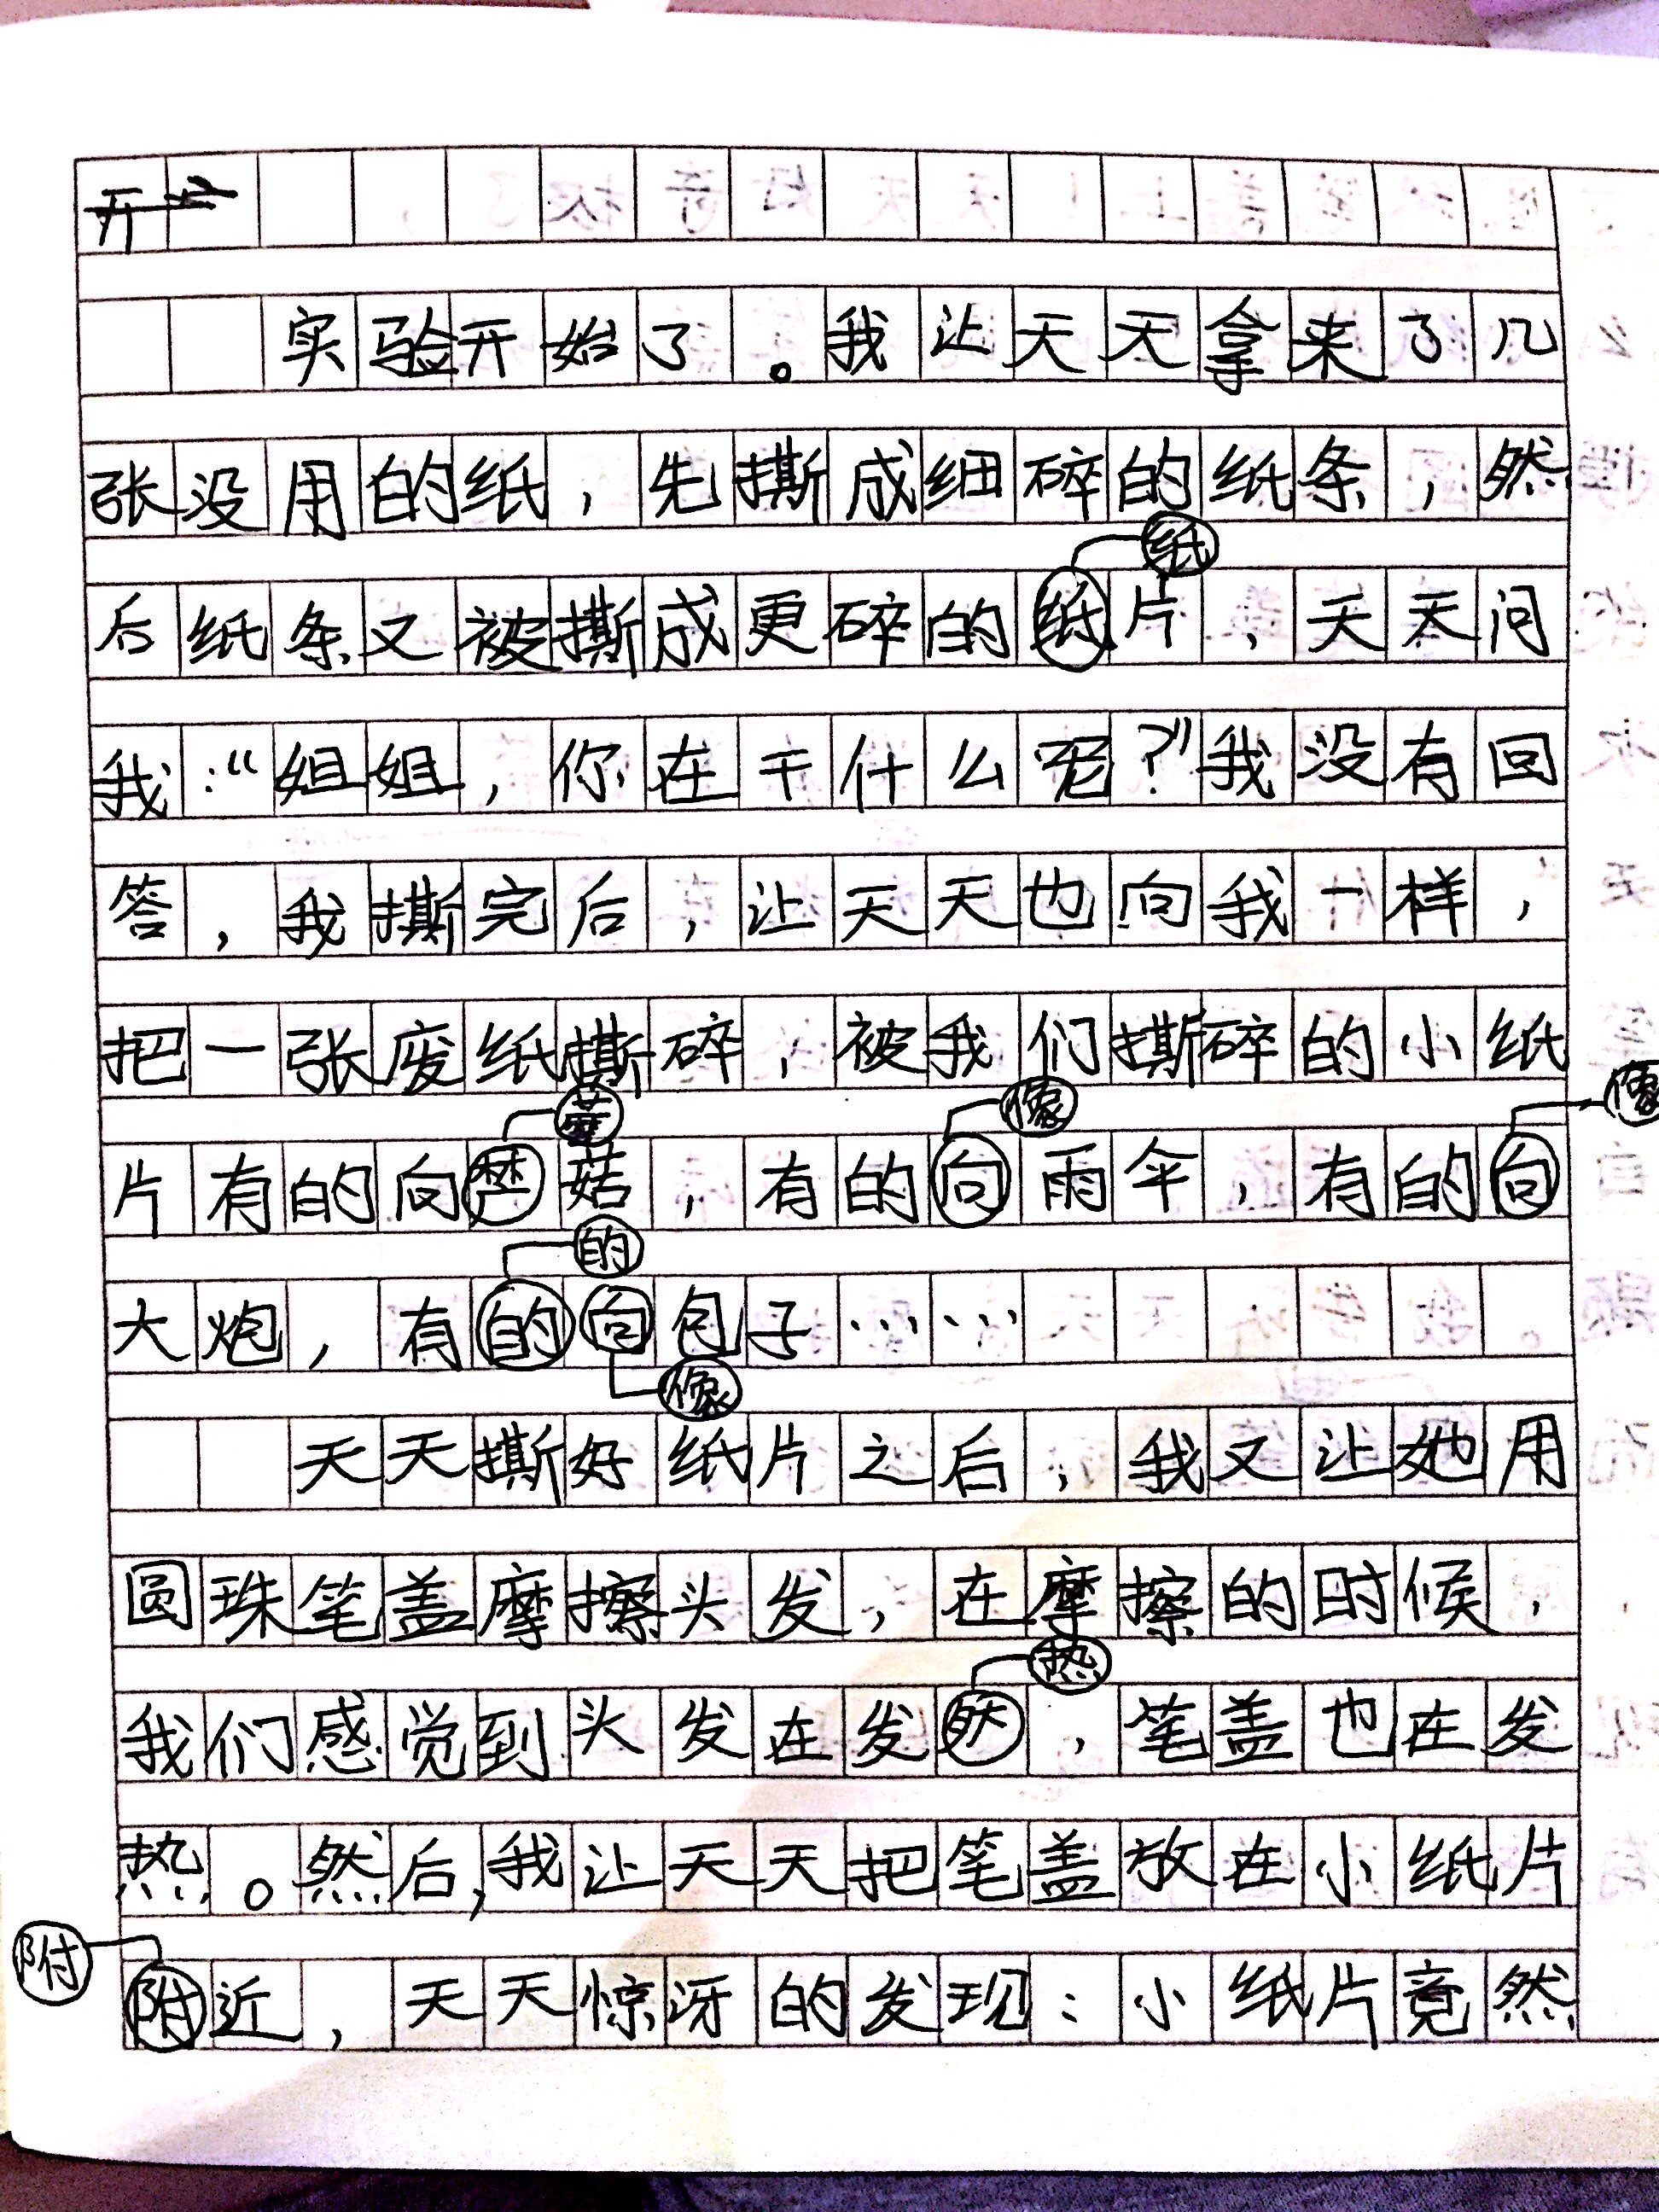 开
实验开始了。我让天天拿来了几
张没用的纸，先撕成细碎的纸条，然
纸
后纸条又被撕成更碎的纸片，天天问
我：“姐姐，你在干什么呢？”我没有回
答，我撕完后，让天天也向我一样，
把一张废纸撕碎，被我们撕碎的小纸
蘑 像 像
片有的向菇，有的向雨伞，有的向
的
大炮，有的向包子……
像
天天撕好纸片之后，我又让她用
圆珠笔盖摩擦头发，在摩擦的时候，
热
我们感觉到头发在发，笔盖也在发
热。然后，我让天天把笔盖放在小纸片
附
附近，天天惊讶的发现：小纸片竟然